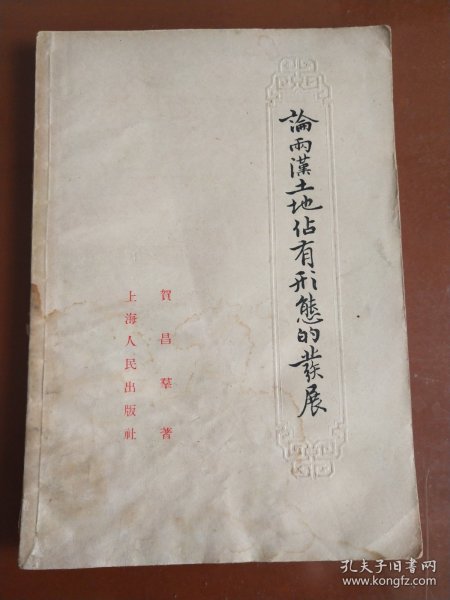 論兩漢土地佔有形態的發展
賀昌羣著
上海人民出版社
孔夫子旧书网
www.kongfz.com